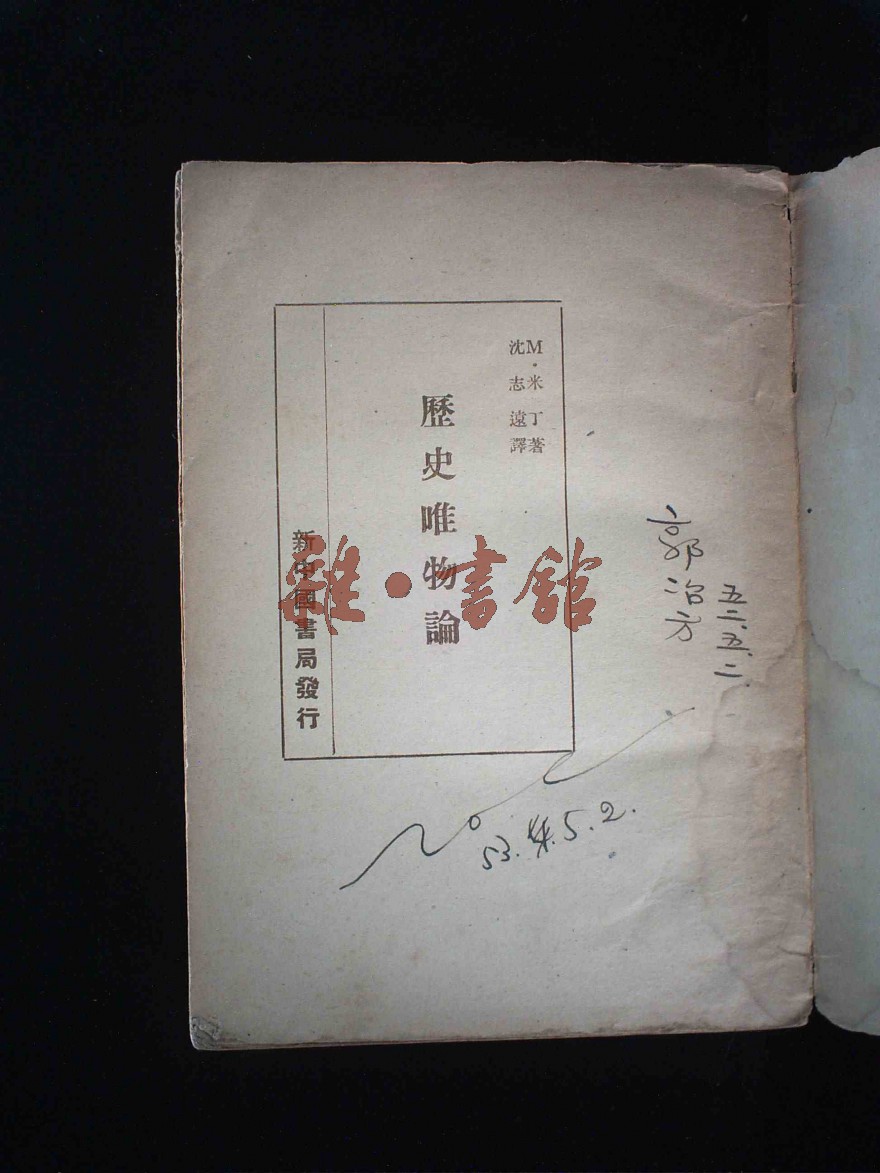 M·米丁著
沈志遠譯
歷史唯物論
新中國書局發行
郭冶方
五二、五、二、
53. 5. 2.
雜·書館